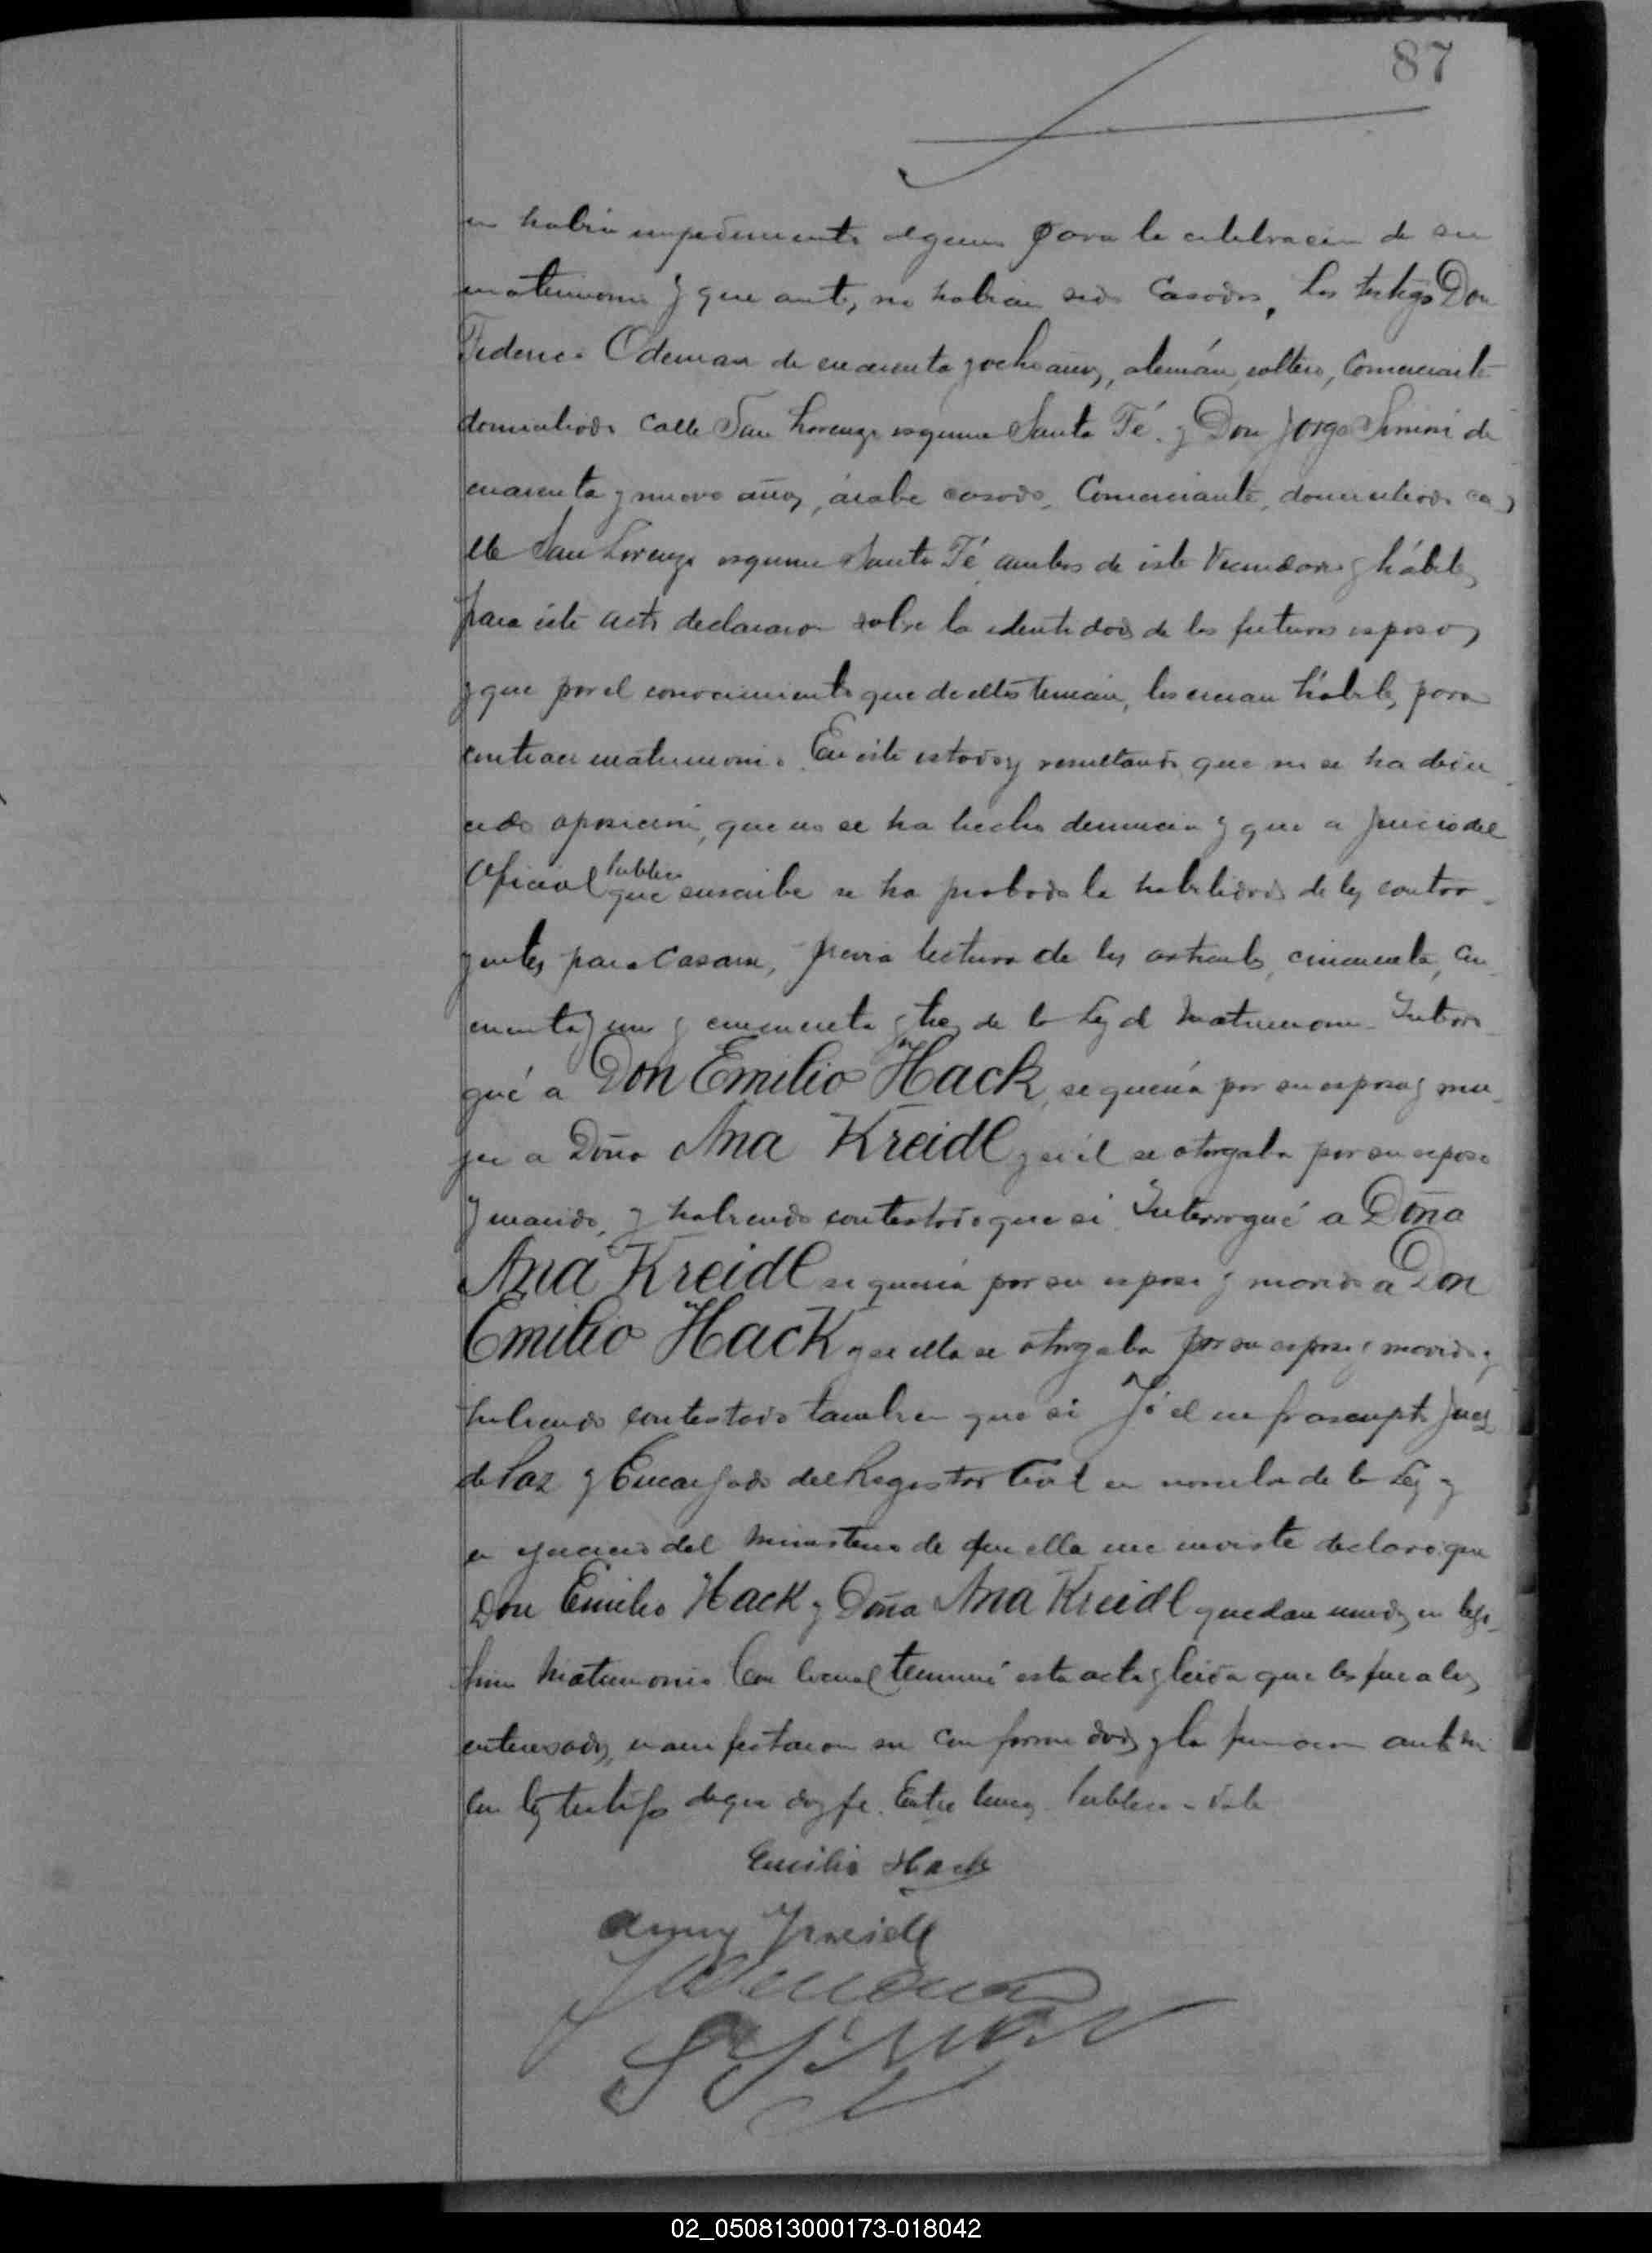 87
no había impedimento alguno para la celebración de su
matrimonio y que antes no habían sido casados. Los testigos Don
Federico Odeman de cuarenta y ocho años, alemán, soltero, Comerciante
domiciliado calle San Lorenzo esquina Santa Fé y Don Jorge Simini de
cuarenta y nueve años, árabe casado, Comerciante, domiciliado ca
lle San Lorenzo esquina Santa Fé ambos de éste Vecindario y hábiles
para éste acto declararon sobre la identidad de los futuros esposos
y que por el conocimiento que de ellos tenían, los creían hábiles para
contraer matrimonio. En éste estado y resultando que no se ha dedu
cido oposición, que no se ha hecho denuncia y que a juicio del
Oficial público que suscribe se ha probado la habilidad de los contra
yentes para casarse, previa lectura de los artículos, cincuenta, cin
cuenta y uno y cincuenta y tres de la Ley de Matrimonio. Interro
gué a Don Emilio Hack, si quería por su esposa y mu
jer a Doña Ana Kreidl y si él se otorgaba por su esposo
y marido, y habiendo contestado que si. Interrogué a Doña
Ana Kreidl si quería por su esposo y marido a Don
Emilio Hack y si ella se otorgaba por su esposa y marido y
habiendo contestado tambien que si Yó el infrascripto Juez
de Paz y Encargado del Registro Civil en nombre de la Ley y
en ejercicio del ministerio de que ella me inviste declaro: que
Don Emilio Hack y Doña Ana Kreidl quedan unidos en legí
timo Matrimonio Con lo cual terminé esta acta y leída que les fué a los
interesados, manifestaron su conformidad y la firmaron ante mí
con los testigos de que doy fe. Entre lineas público - Vale
Emilio Hack
Anny Kreidl